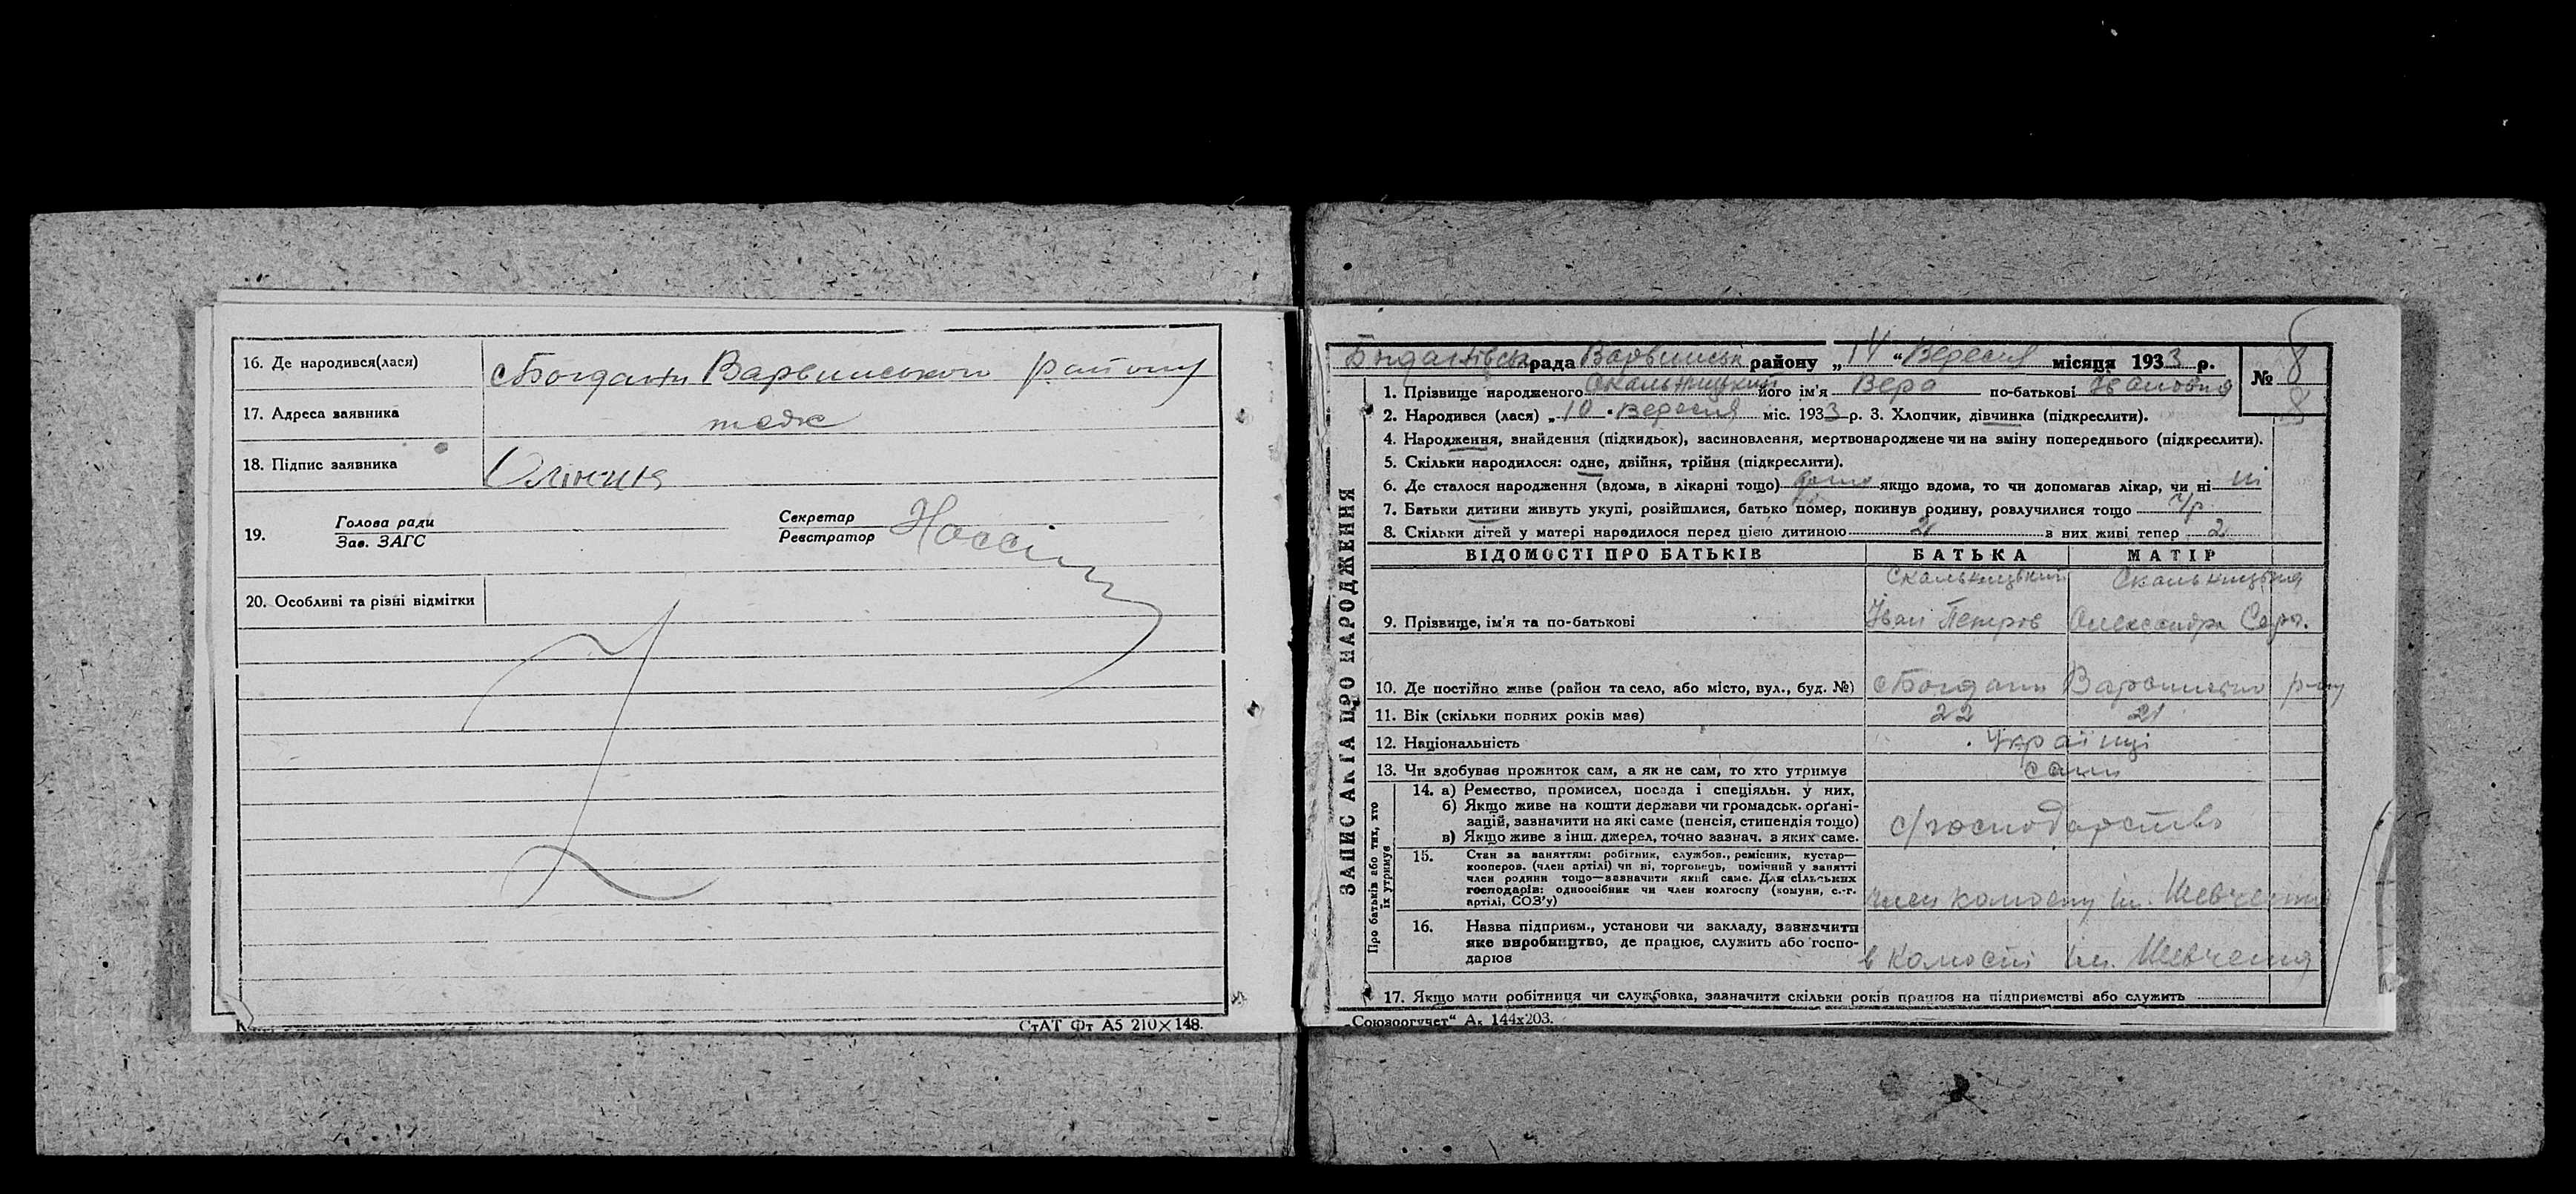 16. Де народився(лася) с Богдани Варвинського району
17. Адреса заявника тодж
18. Підпис заявника
19. Голова ради
Зав. ЗАГС
Секретар
Реєстратор
20. Особливі та різні відмітки
СтАТ Фт А5 210×148.
ЗАПИС АКТА ПРО НАРОДЖЕННЯ
Богданівськ рада Варвинськ району „14 “ Вересня місяця 1933 р.
№ 8
8
1. Прізвище народженого Скальницький його ім'я Вера по-батькові Івановна
2. Народився (лася) „10 " Вересня міс. 1933 р. 3. Хлопчик, дівчинка (підкреслити).
4. Народження, знайдення (підкидьок), засиновлення, мертвонароджене чи на зміну попереднього (підкреслити).
5. Скільки народилося: одне, двійня, трійня (підкреслити).
6. Де сталося народження (вдома, в лікарні тощо) якщо вдома, то чи допомагав лікар, чи ні ні
7. Батьки дитини живуть укупі, розійшлися, батько помер, покинув родину, розлучилися тощо
8. Скільки дітей у матері народилося перед цією дитиною 2 в них живі тепер 2
ВІДОМОСТІ ПРО БАТЬКІВ БАТЬКА МАТІР
Скальницький Скальницькия
9. Прізвище, ім'я та по-батькові Іван Петров Олександра
10. Де постійно живе (район та село, або місто, вул., буд. №) с Богдани Варвинського р-ну
11. Вік (скільки повних років має) 22 21
12. Національність Українці
13. Чи здобуває прожиток сам, а як не сам, то хто утримує сами
Про батьків або тих, хто їх утримує
14. а) Ремество, промисел, посада і спеціяльн. у них,
б) Якщо живе на кошти держави чи громадськ. органі-
зацій, зазначити на які саме (пенсія, стипендія тощо)
в) Якщо живе з інш. джерел, точно зазнач. з яких саме.
с/господарство
15. Стан за заняттям: робітник, службов., ремісник, кустар—
кооперов. (член артілі) чи ні, торговець, помічний у занятті
член родини тощо—зазначити який саме. Для сільських
господарів: одноосібник чи член колгоспу (комуни, с.-г.
артілі, СОЗ'у)
член колгоспу ім. Шевченка
16. Назва підприєм., установи чи закладу, зазначити
яке виробництво, де працює, служить або госпо-
дарює
в колгоспі ім. Шевченка
17. Якщо мати робітниця чи службовка, зазначити скільки років працює на підприємстві або служить
„Союзоргучет“ А₅ 144x203.